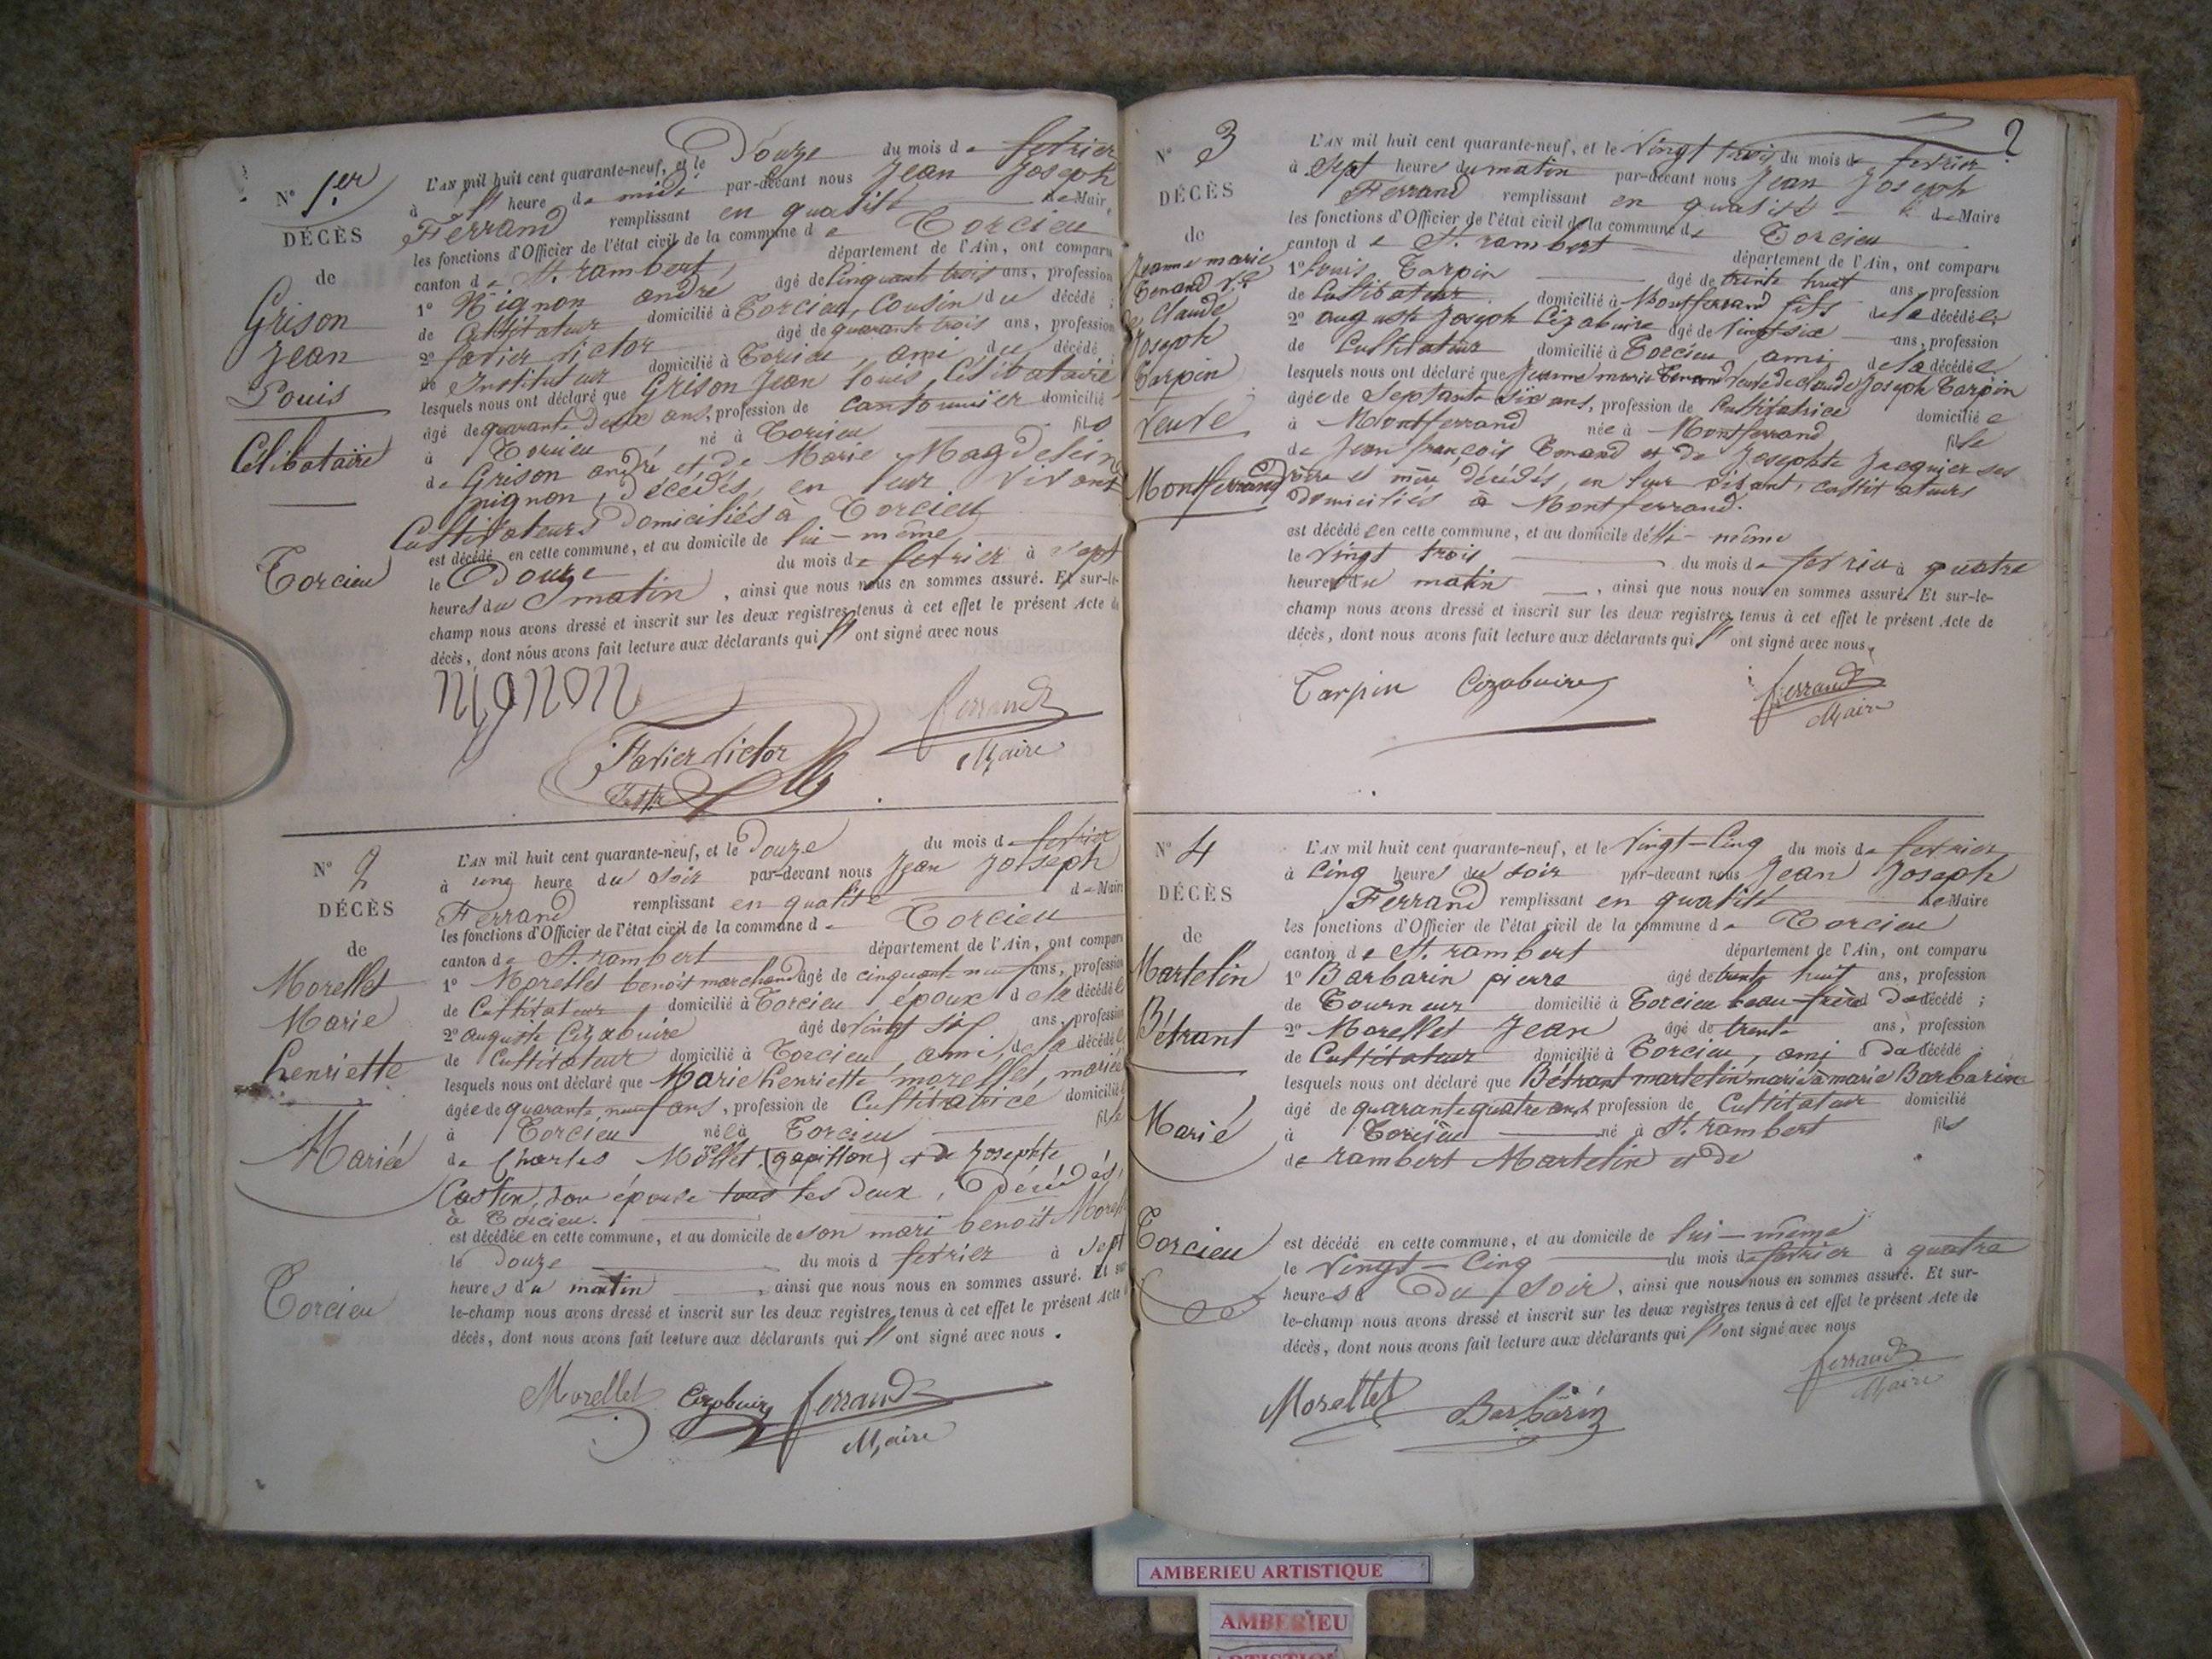 N° 1.er
DÉCÈS
de
Grison
Jean
Louis
Célibataire
Torcieu
L'AN mil huit cent quarante-neuf, et le Douze du mois de fevrier
à heure de midi par-devant nous Jean Joseph
Ferrand remplissant en qualité de Maire
les fonctions d'Officier de l'état civil de la commune de Torcieu
canton de St. rambert département de l'Ain, ont comparu
1° Nignon andré âgé de Cinquant trois ans, profession
de Cultivateur domicilié à Torcieu, Cousin du décédé ;
2° favier victor âgé de quarante trois ans, profession
de Instituteur domicilié à Torcieu, ami du décédé ;
lesquels nous ont déclaré que Grison Jean Louis Célibataire
âgé de quarante deux ans, profession de cantonnier domicilié
à Torcieu né à Torcieu fils
de Grison andré et de Marie Magdelein
nignon, décédés, en leur vivant
Cultivateurs Domiciliés à Torcieu
est décédé en cette commune, et au domicile de lui-même
le Douze du mois de fevrier à sept
heures du matin, ainsi que nous nous en sommes assuré. Et sur-le-
champ nous avons dressé et inscrit sur les deux registres tenus à cet effet le présent Acte de
décès, dont nous avons fait lecture aux déclarants qui ont signé avec nous
nignon
Favier victor
ferrand
Maire
N° 2
DÉCÈS
de
Morellet
Marie
henriette
Mariée
Torcieu
L'AN mil huit cent quarante-neuf, et le Douze du mois de fevrier
à une heure du soir par-devant nous Jean Joseph
Ferrand remplissant en qualité de Maire
les fonctions d'Officier de l'état civil de la commune de Torcieu
canton de St. rambert département de l'Ain, ont comparu
1° Morellet benoit marchand âgé de cinquante neuf ans, profession
de Cultivateur domicilié à Torcieu époux de la décédée
2° auguste Cizabuire âgé de vingt six ans, profession
de Cultivateur domicilié à Torcieu, ami de la décédée
lesquels nous ont déclaré que Marie henriette morellet, mariée
âgée de quarante neuf ans, profession de Cultivatrice domiciliée
à Torcieu née à Torcieu fille
de Charles Mollet (gapillon) et de Josephte
Castin, son épouse tous les deux, Décédés,
à Torcieu.
est décédée en cette commune, et au domicile de son mari benoit Morell
le douze du mois d fevrier à sept
heures du matin, ainsi que nous nous en sommes assuré. Et sur
le-champ nous avons dressé et inscrit sur les deux registres tenus à cet effet le présent Acte
décès, dont nous avons fait lecture aux déclarants qui ont signé avec nous.
Morellet Cizabuire ferrand
Maire
2
N° 3
DÉCÈS
de
Jeanne marie
Tenand Ve
de Claude
Joseph
Tarpin
Veuve
Montferrand
L'AN mil huit cent quarante-neuf, et le Vingt trois du mois de fevrier
à Sept heures du matin par-devant nous Jean Joseph
Ferrand remplissant en qualité de Maire
les fonctions d'Officier de l'état civil de la commune de Torcieu
canton de St. rambert département de l'Ain, ont comparu
1° Louis Tarpin âgé de trente huit ans, profession
de Cultivateur domicilié à Montferrand fils de la décédée
2° auguste Joseph Cizabuire âgé de Vingt six ans, profession
de Cultivateur domicilié à Torcieu ami de la décédée
lesquels nous ont déclaré que Jeanne marie Tenand veuve de claude Joseph Tarpin
âgée de Septante Six ans, profession de Cultivatrice domiciliée
à Montferrand née à Montferrand fille
de Jean françois Tenand et de Josephte Jacquier ses
père et mère décédés, en leur vivant, cultivateurs
domiciliés à Montferrand.
est décédée en cette commune, et au domicile d'elle-même
le vingt trois du mois de fevrier à quatre
heures du matin, ainsi que nous nous en sommes assuré. Et sur-le-
champ nous avons dressé et inscrit sur les deux registres tenus à cet effet le présent Acte de
décès, dont nous avons fait lecture aux déclarants qui ont signé avec nous.
Tarpin Cizabuire ferrand
Maire
N° 4
DÉCÈS
de
Martelin
Bétrant
Marié
Torcieu
L'AN mil huit cent quarante-neuf, et le Vingt-Cinq du mois de fevrier
à Cinq heures du soir par-devant nous Jean Joseph
Ferrand remplissant en qualité de Maire
les fonctions d'Officier de l'état civil de la commune de Torcieu
canton de St. rambert département de l'Ain, ont comparu
1° Barbarin pierre âgé de trente huit ans, profession
de Tourneur domicilié à Torcieu beau-frère du décédé ;
2° Morellet Jean âgé de trente ans, profession
de Cultivateur domicilié à Torcieu, ami du décédé ;
lesquels nous ont déclaré que Bétrant martelin marié à marie Barbarin
âgé de quarante quatre ans profession de Cultivateur domicilié
à Torcieu né à St. rambert fils
de rambert Martelin et de
est décédé en cette commune, et au domicile de lui-même
le Vingt-Cinq du mois de fevrier à quatre
heures du Soir, ainsi que nous nous en sommes assuré. Et sur-
le-champ nous avons dressé et inscrit sur les deux registres tenus à cet effet le présent Acte de
décès, dont nous avons fait lecture aux déclarants qui ont signé avec nous
Morellet Barbarin ferrand
Maire
AMBERIEU ARTISTIQUE
AMBERIEU
ARTISTIQUE